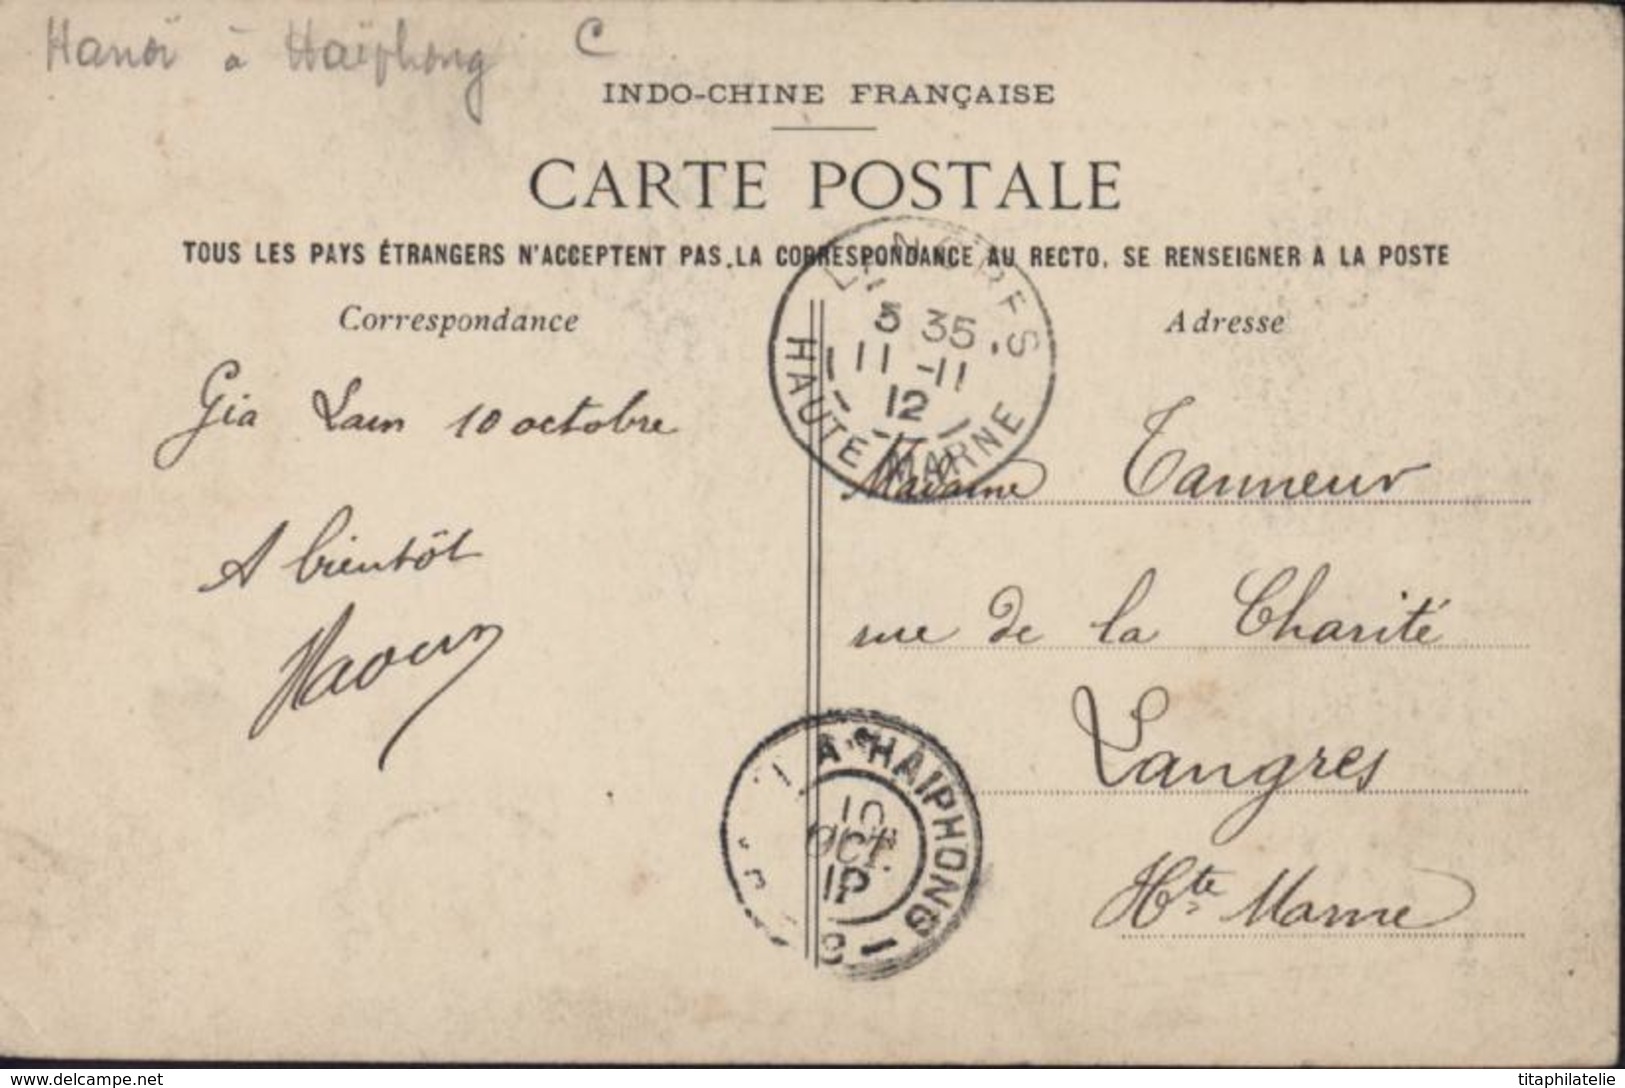 Hanoï à Haïphong C
INDO-CHINE FRANÇAISE
CARTE POSTALE
TOUS LES PAYS ÉTRANGERS N'ACCEPTENT PAS LA CORRESPONDANCE AU RECTO, SE RENSEIGNER A LA POSTE
Correspondance
Adresse
LANGRES
5 35
11 -11
12
HAUTE MARNE
Gia Lam 10 octobre
A bientôt
Madame Tanneur
rue de la Charité
Langres
Hte Marne
A HAIPHONG
10
OCT.
www.delcampe.net
titaphilatelie